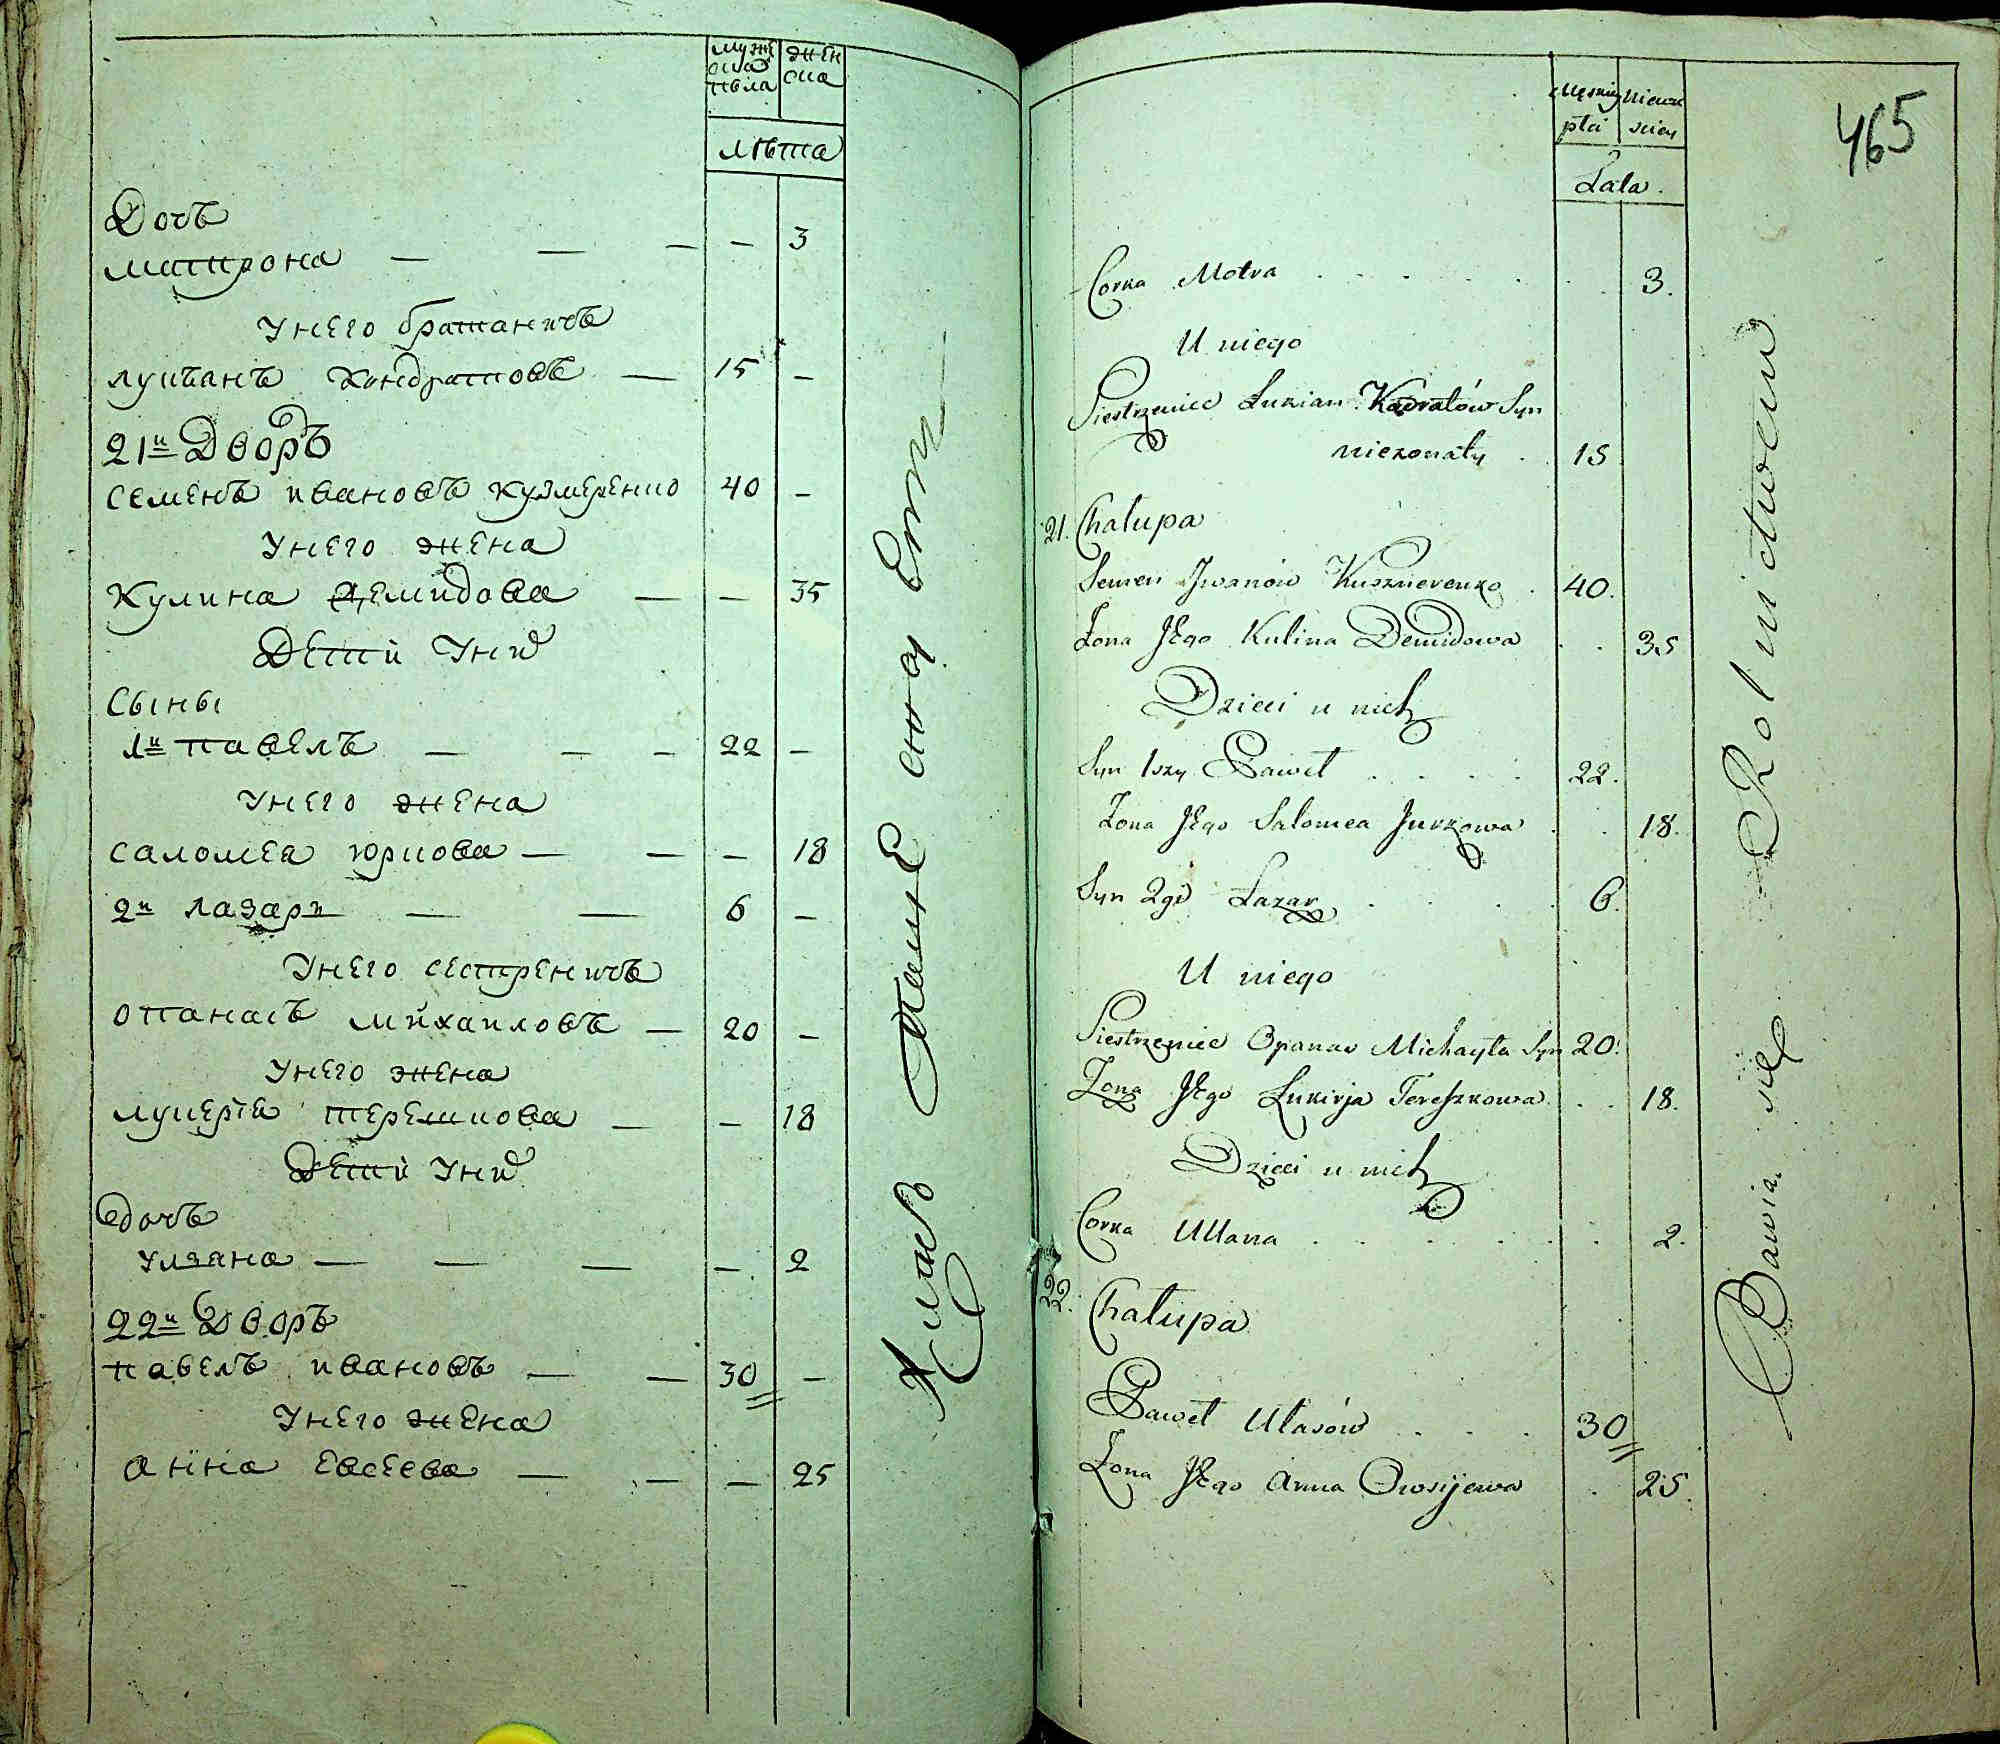 муже
ска
пола
жен
ска
лѣта
Дочь
матрона — — — — 3
Унего братаничъ
лукьанъ кондратовъ — 15 —
21й Дворъ
Семенъ ивановъ кузмеренко 40 —
Унего жена
Кулина Демидова — — 35
Дети Уних
Сыны
1й павелъ — — — 22 —
Унего жена
саломея юркова — — — 18
2й лазарь — — 6 —
Унего сестреничъ
опанасъ михаиловъ — 20 —
Унего жена
лукерїя терешкова — — 18
Дети Уних
дочъ
улзана — — — — 2
22й Дворъ
павелъ ивановъ — — 30 —
Унего жена
анна Евсеева — — — 25
465
Męskiey
płci
Niewie
sciey
Lata.
Corka Motra 3.
U niego
Siestrzeniec Łukian Kodratów Syn
niezonaty 15
21. Chałupa
Semen Jwanów Kusznerenko 40.
Żona Jego Kulina Demidowa 35
Dzieci u nich
Syn 1szy Paweł 22.
Żona Jego Salomea Jurkowa 18.
Syn 2gi Łazar 6.
U niego
Siestrzeniec Opanas Michayła Syn 20.
Żona Jego Łukirja Tereszkowa 18.
Dzieci u nich
Corka Ullana 2.
22. Chałupa
Paweł Ułasów 30
Żona Jego Anna Owsijewa 25.
Bawią się Rolnictwem